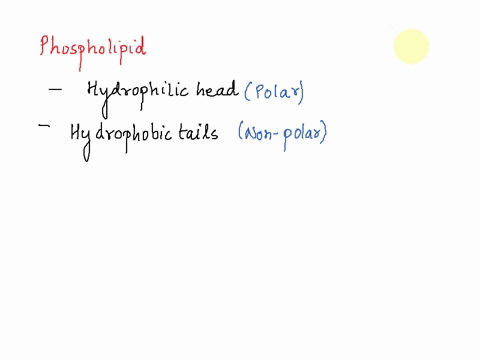 Phospholipid
- Hydrophilic head (Polar)
- Hydrophobic tails (Non-polar)